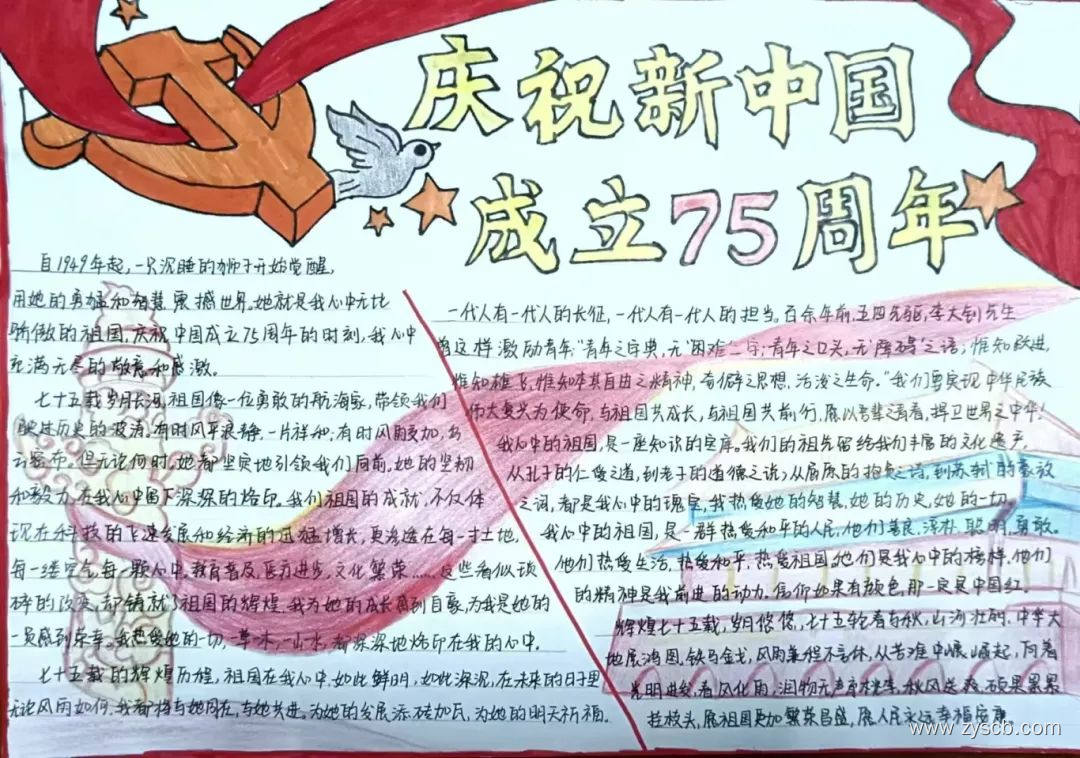 庆祝新中国
成立75周年
自1949年起,一只沉睡的狮子开始觉醒,
用她的勇猛和智慧震撼世界。她就是我心中无比
骄傲的祖国,庆祝中国成立75周年的时刻,我心中
充满无尽的敬意和感激。
七十五载岁月长河,祖国像一位勇敢的航海家,带领我们
驶过历史的波涛。有时风平浪静,一片祥和;有时风雨交加,乌
云密布。但无论何时,她都坚定地引领我们向前。她的坚韧
和毅力,在我心中留下深深的烙印。我们祖国的成就,不仅体
现在科技的飞速发展和经济的迅猛增长,更渗透在每一寸土地,
每一缕空气,每一颗心中。教育普及,医疗进步,文化繁荣……这些看似琐
碎的改变,却铸就了祖国的辉煌。我为她的成长感到自豪,为我是她的
一员感到荣幸。我热爱她的一切,一草一木,一山一水,都深深地烙印在我的心中。
七十五载的辉煌历程,祖国在我心中,如此鲜明,如此深沉,在未来的日子里
无论风雨如何,我都将与她同在,与她共进。为她的发展添砖加瓦,为她的明天祈福。
一代人有一代人的长征,一代人有一代人的担当。百余年前,五四先驱,李大钊先生
曾这样激励青年:"青年之字典,无"困难"之字;青年之口头,无"障碍"之语;惟知跃进,
惟知雄飞,惟知本其自由之精神,奇僻之思想,活泼之生命。"我们要实现中华民族
伟大复兴为使命,与祖国共成长,与祖国共前行,愿以吾辈之青春,捍卫世界之中华!
我心中的祖国,是一座知识的宝库。我们的祖先留给我们丰富的文化遗产,
从孔子的仁爱之道,到老子的道德之说,从屈原的抱负之诗,到苏轼的豪放
之词,都是我心中的瑰宝,我热爱她的智慧,她的历史,她的一切。
我心中的祖国,是一群热爱和平的人民,他们善良,淳朴,聪明,勇敢。
他们热爱生活,热爱和平,热爱祖国,他们是我心中的榜样,他们
的精神是我前进的动力。信仰如果有颜色,那一定是中国红。
辉煌七十五载,岁月悠悠,七十五轮春与秋,山河壮丽,中华大
地展鸿图。铁马金戈,风雨兼程不言休,从苦难中崛起,向着
光明进发,春风化雨,润物无声,秋风送爽,硕果累累
挂枝头,愿祖国更加繁荣昌盛,愿人民永远幸福安康。
www.zyscb.com